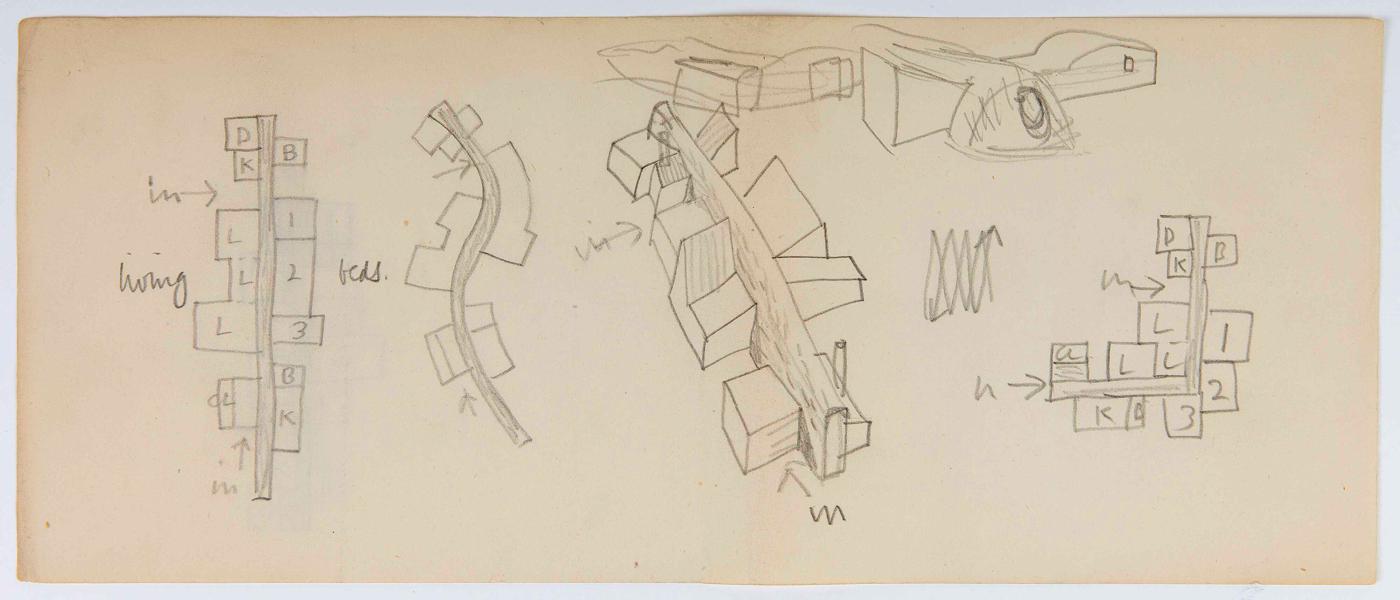 D
B
K
in
L
1
living
L
2
beds.
L
3
B
a
K
in
in
in
D
B
K
in
L
1
a
L
L
2
K
3